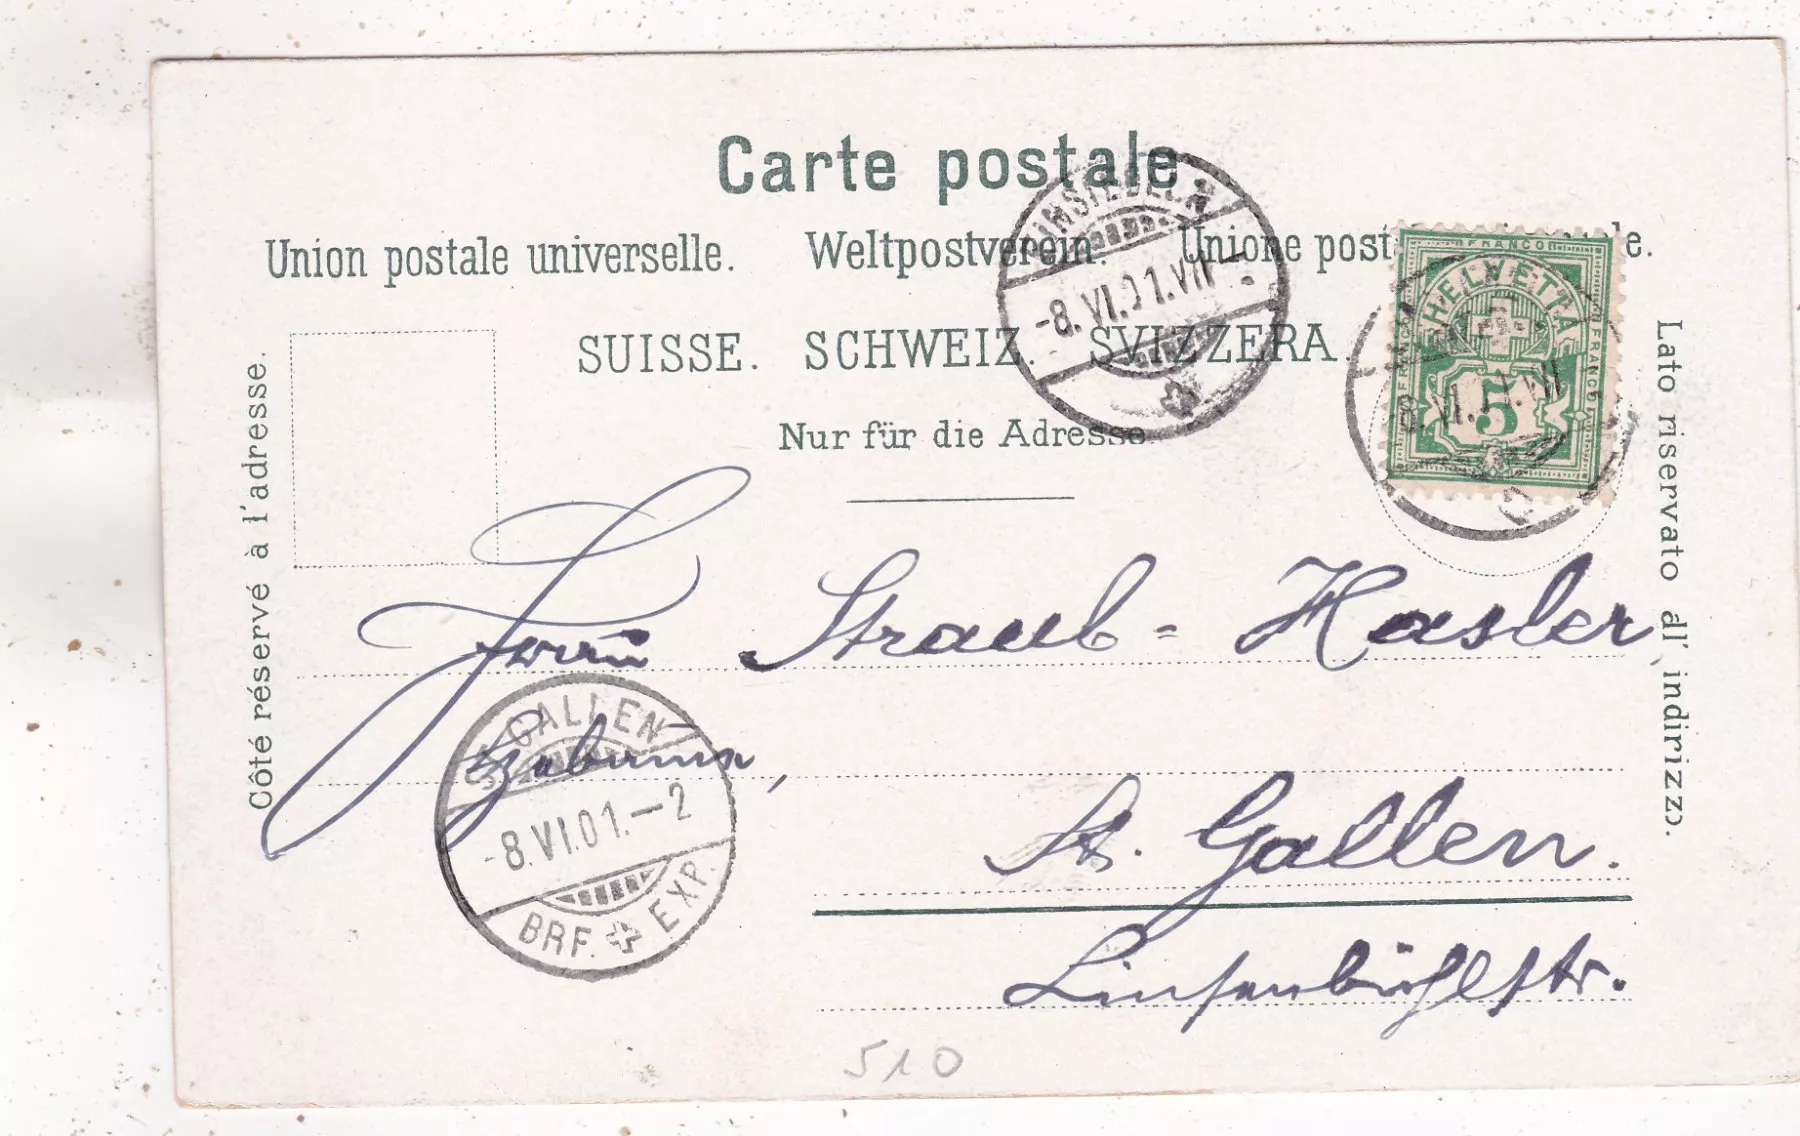 Carte postale
Union postale universelle. Weltpostverein. Unione post e.
SUISSE. SCHWEIZ. SVIZZERA.
Nur für die Adresse
Côté réservé à l'adresse.
Lato riservato all' indirizzo.
EINSIEDELN
-8.VI.01.VII-
FRANCO
FRANCO
FRANCO
HELVETIA
5
8.VI.01.VII
Straub-Hasler
ST. GALLEN
-8.VI.01.-2
BRF. EXP.
Hebamme,
St. Gallen.
Linsenbühlstr.
510